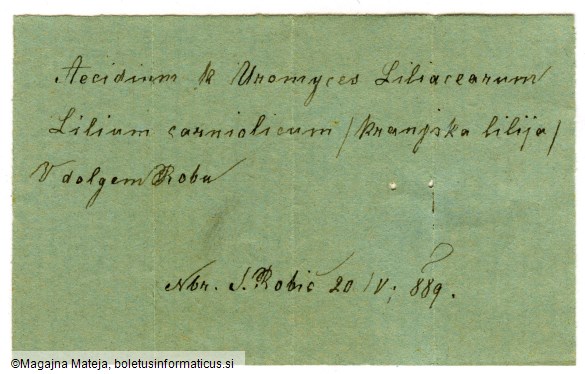 Aecidium k Uromyces Liliacearum
Lilium carniolicum /kranjska lilija/
V dolgem Robu
Nbr. S. Robič 20/V, 889.
©Magajna Mateja, boletusinformaticus.si